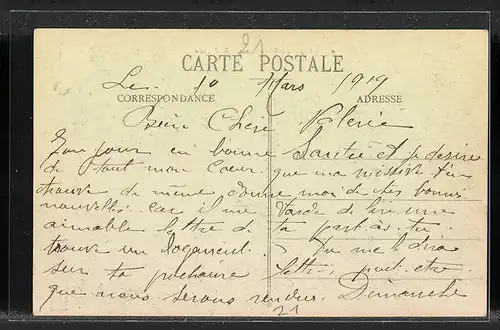 21
CARTE POSTALE
Le 10 Mars 1919
CORRESPONDANCE
ADRESSE
Bien Chère Valerie
jour en bonne Santé et je désire
de tout mon Coeur que ma missive t'en
trouve de même donne moi de tes bonnes
nouvelles car il me tarde de lire une
aimable lettre de ta part as-tu
trouvé un logement. Tu me le diras
sur ta prochaine lettre, peut-être
que nous serons rendus Dimanche
21